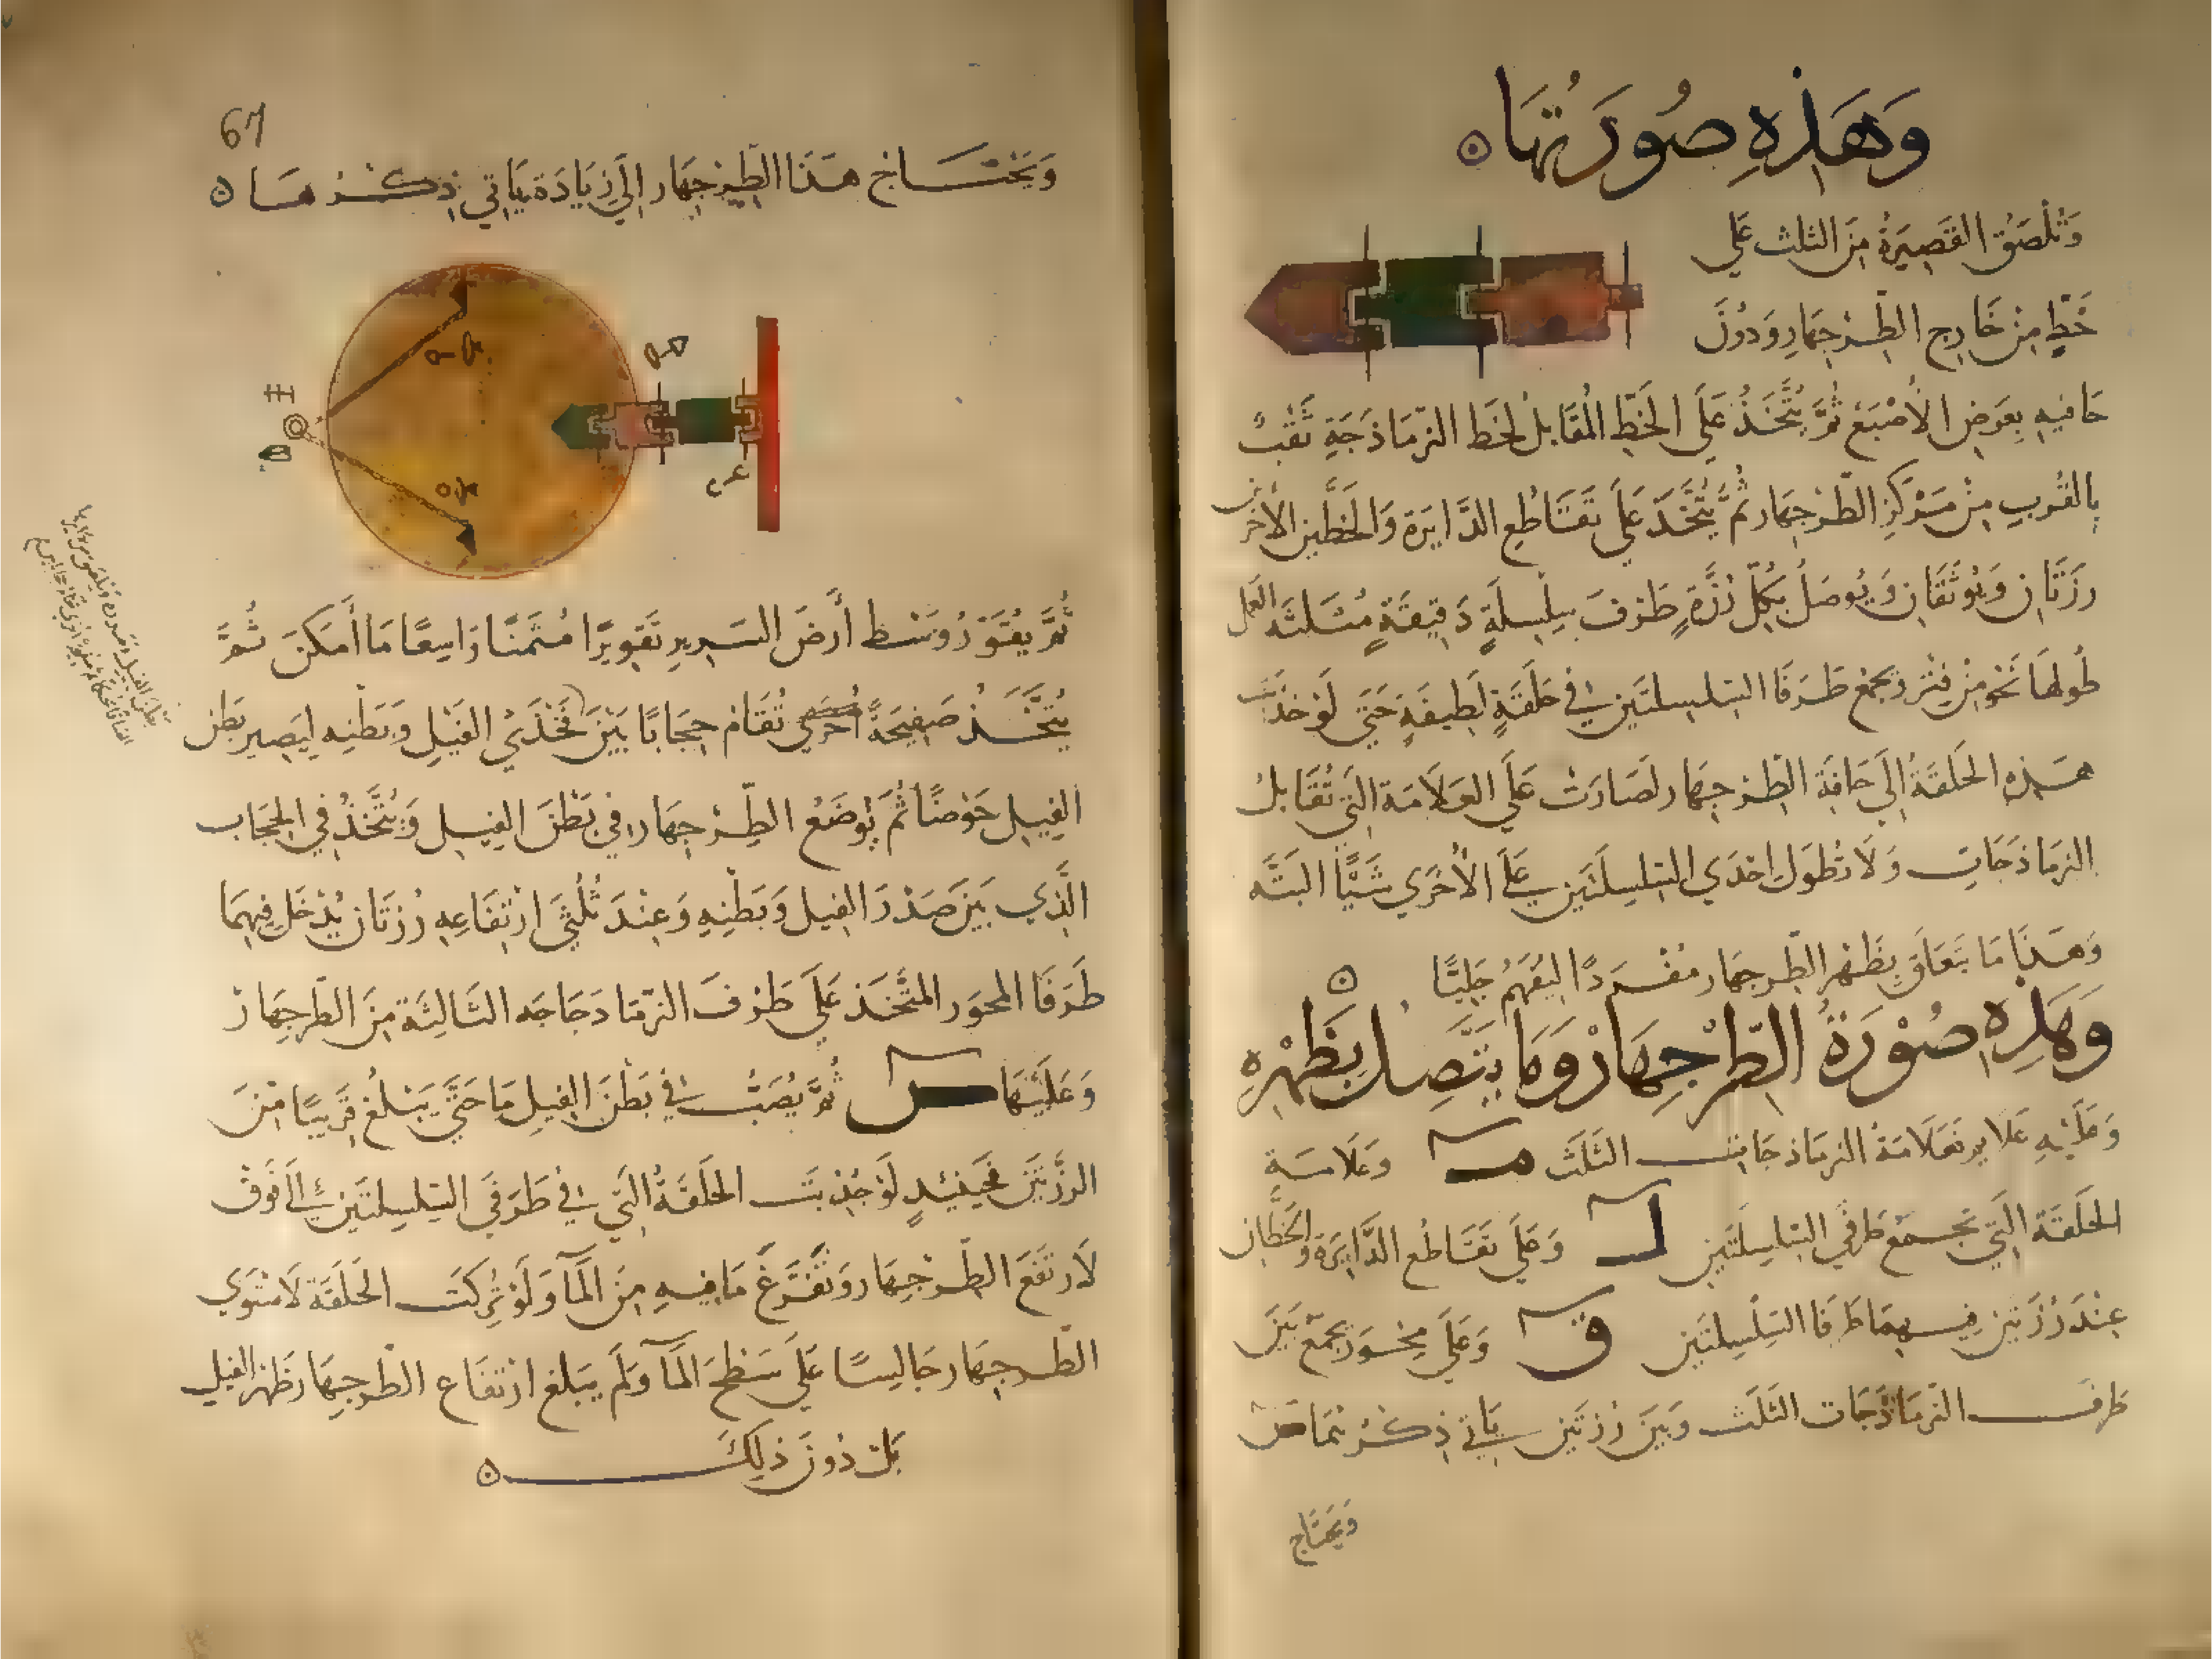 وَهَذِهِ صُورَتُهَا
وَتُلْصَقُ القَصِيرَةُ مِنَ الثلث عَلَى
خَطٍّ مِنْ خَارِج الطِّرْجِهَارِ وَدُونَ
حَافيهِ بِعَرضِ الأُصْبَعِ ثُمَّ يُتَّخَذُ عَلَى الخَطِّ المُقَابِل لخَط النرمَاذجَةِ ثَقْبٌ
بِالقُربِ مِنْ مَرْكَزِ الطِّرْجِهَار ثُمَّ يُتَّخَذ عَلَى تَقَاطُعِ الدَّايِرَة وَالخَطَّيْنِ الأُخَر
رزَتَانِ وَيُوثَقَانِ وَيُوصَلُ بِكُلِّ رُزَّةٍ طَرَفَ سِلْسِلَةٍ دَقِيقَةٍ مُثَلثَه العَمل
طُولهَا نَحْو مِنْ فِتْرٍ وَيجمَع طَرَفَا السِّلسِلتَيْنِ فِي حَلقَةٍ لَطِيفَةٍ حَتَّى لَوْ جُذبَت
هَذِهِ الحَلقَةُ إِلَى حَافَةِ الطِّرْجِهَار لَصَارَتْ عَلَى العَلَامَة التِي تُقَابلُ
النرمَاذجَاتِ وَلَا تطُولُ احْدَي السِّلسِلَتَيْنِ عَلَى الأُخْرَي شَيًّا البَتَّه
وَهَذَا مَا يَتَعَلَق بِظَهْرِ الطِّرجهَار مُفْرَدًا ليُفهَمُ جَلِيًّا
وَهَذِهِ صُوْرَةُ الطِّرْجِهَارْ وَمَا يَتَّصِلُ بِظَهْرِهِ
وَعَلَيْهِ عَلَايم فعَلَامَةُ النرمَاذجَات الثَلَث مـ وَعَلَامَة
الحَلقَة التِي تجمَعُ طَرَفَي السِّلسِلَتَيْنِ لـ وَعَلَى تَقَاطُع الدَّايِرَة وَالخَطَّان
عِنْدَ رُزتَيْنِ فِيهِمَا طَرَفَا السِّلْسِلتَيْنِ ق وَعَلَى مِحْوَر يَجمَعُ بَيْنَ
طَرف النرمَاذَجَات الثَلَث وَبَيْنَ رُزتَيْنِ يَاتِي ذِكْرُهُمَا ص
وَيحتَاج
67
وَيَحْتَاج هَذَا الطِّرْجِهَار إِلَى زِيَادَة يَاتِي ذِكْرُهَا
ثُمَّ يُقَوَّرُ وَسْط أَرضَ السَرِيرِ تَقْوِيرًا مُثَمَنًا وَاسِعًا مَا أَمْكَنَ ثُمَّ
يُتَّخَذُ صَفِيحَةً أُخرَي تُقَام حِجَابًا بَيْنَ فَخْذَيْ الفِيْلِ وَبَطْنِهِ لِيَصِير بَطن
الفِيل حَوْضًا ثُمَّ يُوضَعُ الطِّرْجِهَار فِي بَطْنَ الفِيل وَيُتَّخَذُ فِي الحِجَاب
الَّذِي بَيْنَ صَدْرَ الفِيل وَبَطْنِهِ وَعِنْدَ ثُلُثَي ارْتفَاعِهِ رُزتَان يُدْخَل فِيهِمَا
طَرَفَا المحوَر المتَّخَذ عَلَى طَرْفَ النرمَا دَجَاجَه الثَالِثَة مِنَ الطّرجِهَارْ
وَعَلَيْهَا ص ثُمَّ يُصَبُّ فِي بَطْنَ الفِيلِ مَا حَتَّى يَبْلُغ قَرِيبًا مِنَ
الرزَّتَيْنِ فَحِينَئِذٍ لَوْ جُذبَت الحَلقَةُ التِي فِي طَرَفَي السِّلسِلتَيْنِ إِلَى فَوقْ
لَارتَفَعَ الطِّرْجِهَار وَتَفَرَّغَ مَا فِيهِ مِنَ المَآ وَلَوْ تُرِكَت الحَلَقَة لَاسْتَوَي
الطِّرجِهَار جَالِسًا عَلَى سَطْحَ المَآ وَلَم يَبلغ ارْتفَاع الطّرجِهَار ظَهرَ الفِيل
بَل دُونَ ذَلِكَ